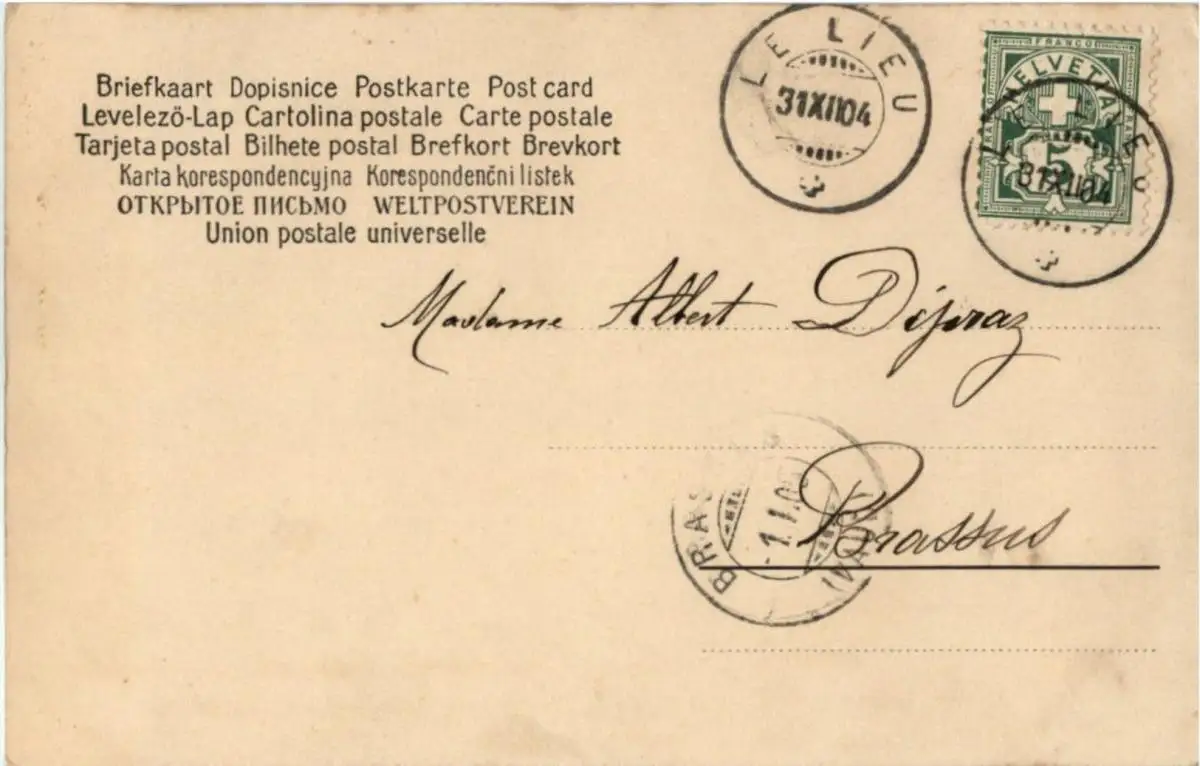 Briefkaart Dopisnice Postkarte Post card
Levelező-Lap Cartolina postale Carte postale
Tarjeta postal Bilhete postal Brefkort Brevkort
Karta korespondencyjna Korespondenčni listek
ОТКРЫТОЕ ПИСЬМО WELTPOSTVEREIN
Union postale universelle
LE LIEU
31XII04
FRANCO
HELVETIA
5
LE LIEU
31XII04
Madame Albert Dépraz
BRAS
1.1.05
(VAUD)
Brassus